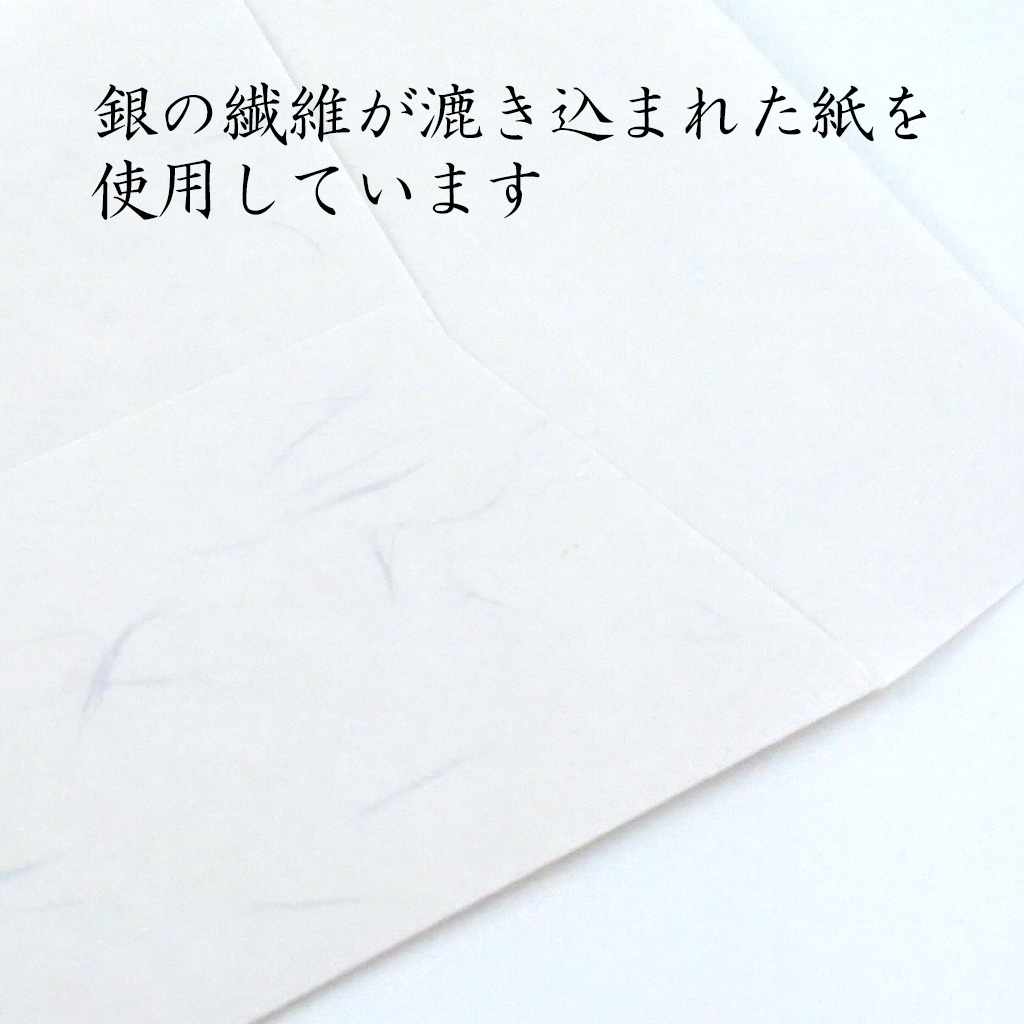 銀の繊維が漉き込まれた紙を
使用しています